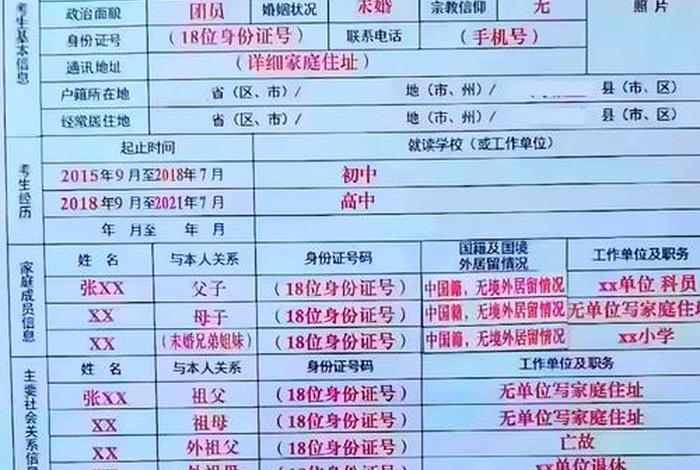 考生基本信息
政治面貌 团员 婚姻状况 未婚 宗教信仰 无 照片
身份证号 (18位身份证号) 联系电话 (手机号)
通讯地址 (详细家庭住址)
户籍所在地 省(区、市)/ 地(市、州)/ 县(市、区)
经常居住地 省(区、市)/ 地(市、州)/ 县(市、区)
考生经历
起止时间 就读学校(或工作单位)
2015年9月至2018年7月 初中
2018年9月至2021年7月 高中
年 月至 年 月
家庭成员信息
姓 名 与本人关系 身份证号码 国籍及国境外居留情况 工作单位及职务
张XX 父子 (18位身份证号) 中国籍,无境外居留情况 xx单位 科员
XX 母子 (18位身份证号) 中国籍,无境外居留情况 无单位写家庭住
XX (未婚兄弟姐妹) (18位身份证号) 中国籍,无境外居留情况 xx小学
主要社会关系信
姓 名 与本人关系 身份证号码 工作单位及职务
张XX 祖父 (18位身份证号) 无单位写家庭住址
XX 祖母 (18位身份证号) 无单位写家庭住址
XX 外祖父 (18位身份证号) 亡故
XX 外祖母 (18位身份证号) xx单位退休